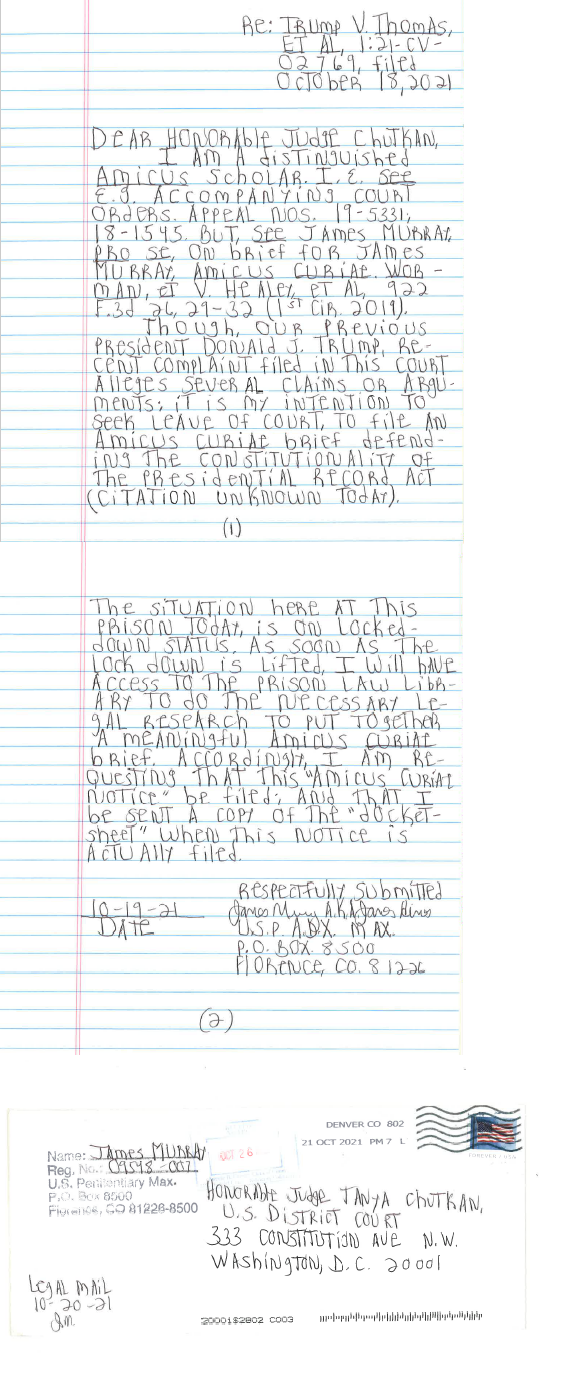 Re: TRUMP V. THOMAS,
ET AL, 1:21-CV-
02769, filed
OCTOBER 18, 2021
DEAR HONORABLE JUDGE CHUTKAN,
I AM A distINGUIShed
AMICUS SCHOLAR. I.E. SEE
E.g. ACCOMPANYING COURT
ORDERS. APPEAL NOS. 19-5331;
18-1545. BUT, SEE JAMES MURRAY,
PRO SE, ON bRief foR JAMES
MURRAY, AMICUS CURIAE. WOR-
MAN, et V. HEALEY, ET AL, 922
F.3d 26, 29-32 (1ST CIR. 2019).
THOUgh, OUR PREVIOUS
PRESIDENT DONALD J. TRUMP, RE-
CENT COMPLAINT filed IN THIS COURT
Alleges SEVERAL CLAIMS OR ARGU-
MENTS; IT IS MY INTENTION TO
SEEK LEAVE OF COURT, TO FILE AN
AMICUS CURIAE bRIEF defend-
ING THE CONSTITUTIONALITY Of
THE PRESIDENTIAL RECORD ACT
(CITATION UNKNOWN TODAY).
(1)
THE SITUATION heRE AT THIS
PRISON TODAY, IS ON LOCKED-
dOWN STATUS. AS SOON AS THE
LOCK dOWN IS LIFTED, I WILL hAVE
ACCESS TO THE PRISON LAW LIBR-
ARY TO dO THE NECESSARY LE-
GAL RESEARCH TO PUT TOGETHER
A MEANINGFUL AMICUS CURIAE
bRIEF. ACCORDINGLY, I AM RE-
QUESTING THAT THIS "AMICUS CURIAE
NOTICE" be filed; AND THAT I
be SENT A COPY OF THE "dOCKET-
sheet" WHEN THIS NOTICE IS
ACTUALLY filed.
RESPECTFULLY SUBMITTED
10-19-21
James Murray A.K.A. James
DATE
U.S.P. A.D.X. MAX.
P.O. BOX 8500
FLORENCE, CO. 81226
DENVER CO 802
21 OCT 2021 PM 7 L
FOREVER USA
OCT 26
Name: JAMES MURRAY
Reg. No.: 09548-007
U.S. Penitentiary Max.
P.O. Box 8500
Florence, CO 81226-8500
HONORABLE JUdge TANYA CHUTKAN,
U.S. DISTRICT COURT
333 CONSTITUTION AVE N.W.
WASHINGTON, D.C. 20001
LEGAL MAIL
10-20-21
J.M.
20001$2802 C003